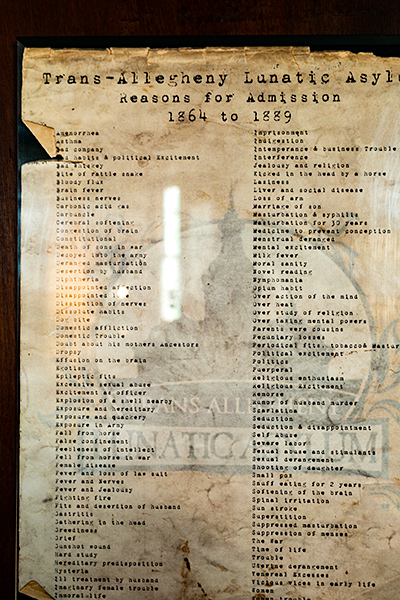 Trans-Allegheny Lunatic Asyl
Reasons for Admission
1864 to 1889
Amenorrhea
Asthma
Bad company
habits & political Excitement
Bad whiskey
Bite of rattle snake
Bloody flux
Brain fever
Business nerves
Carbonic acid gas
Carbuncle
Cerebral softening
Congestion of brain
Constitutional
Death of sons in war
Decoyed into the army
masturbation
Desertion by husband
Diphtheria
Disappointed affection
Disappointed love
Dissipation of nerves
Dissolute habits
Domestic affliction
Domestic trouble
Doubt about his mothers Ancestors
Dropsy
Effusion on the brain
Egotism
Epileptic fits
Excessive sexual abuse
Excitement as officer
Explosion of a shell nearby
Exposure and hereditary
Exposure and quackery
Exposure in army
Fall from horse
False confinement
Feebleness of intellect
Fell from horse in war
Female disease
Fever and loss of law suit
Fever and Nerves
Fever and Jealousy
Fighting fire
Fits and desertion of husband
Gastritis
Gathering in the head
Greediness
Grief
Gunshot wound
Hard study
Hereditary predisposition
Hysteria
Ill treatment by husband
Imaginary female trouble
Immoral life
Imprisonment
Indigestion
Intemperance & business Trouble
Interference
Jealousy and religion
Kicked in the head by a horse
Laziness
Liver and social disease
Loss of arm
Marriage of son
Masturbation & syphilis
Masturbation for 30 years
Medicine to prevent conception
Menstrual deranged
Mental excitement
Milk fever
Moral sanity
Novel reading
Nymphomania
Opium habit
Over action of the mind
Over heat
Over study of religion
Over taxing mental powers
Parents were cousins
Pecuniary losses
Periodical fits. tobacco& Mastur
Political excitement
Politics
Puerperal
Religious enthusiasm
Religious Excitement
Remorse
Rumor of husband murder
Scarlatina
Seduction
Seduction & disappointment
Self abuse
Severe labor
Sexual abuse and stimulants
Sexual derangement
Shooting of daughter
Small pox
Snuff eating for 2 years
Softening of the brain
Spinal irritation
Sun stroke
Superstition
Suppressed masturbation
Suppression of menses
The War
Time of life
Trouble
Uterine derangement
Venereal Excesses
Vicious vices in early life
Women
TRANS ALLEGHENY
LUNATIC ASYLUM